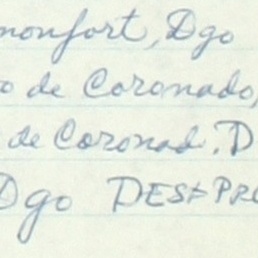 monfort, Dgo
o de Coronado,
de Coronad. D
Dgo DES